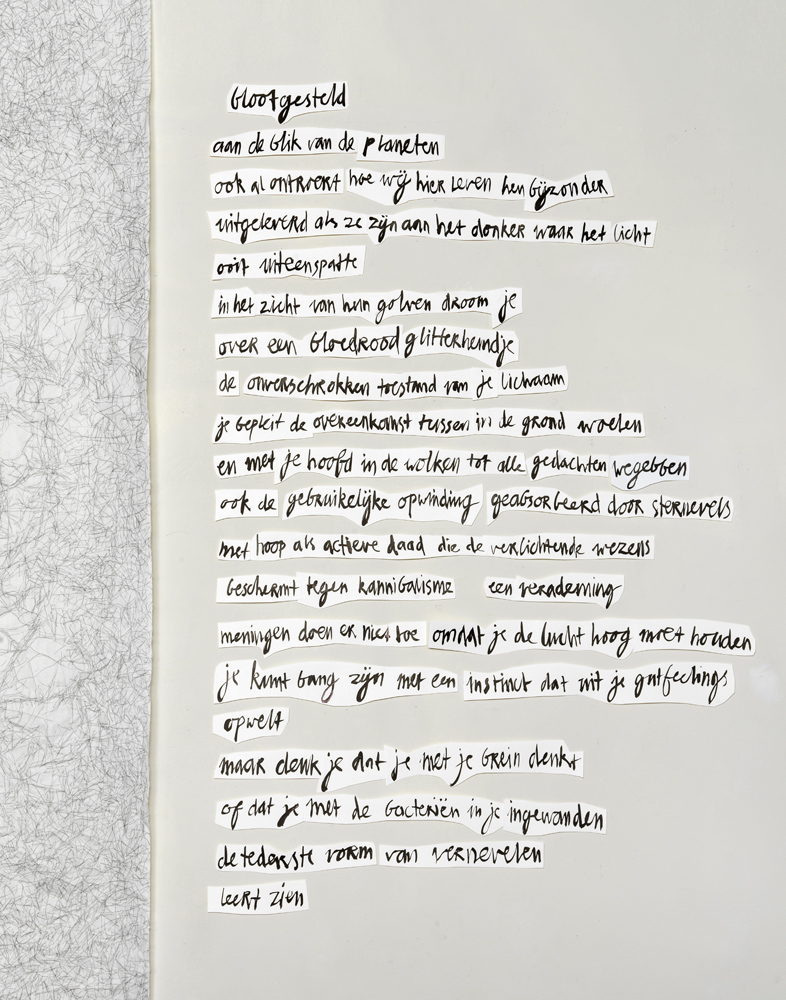 blootgesteld
aan de blik van de planeten
ook al ontroert hoe wij hier leven hen bijzonder
uitgeleverd als ze zijn aan het donker waar het licht
ooit uiteenspatte
in het zicht van hun golven droom je
over een bloedrood glitterhemdje
de onverschrokken toestand van je lichaam
je bepleit de overeenkomst tussen in de grond woelen
en met je hoofd in de wolken tot alle gedachten wegebben
ook de gebruikelijke opwinding geabsorbeerd door sternevels
met hoop als actieve daad die de verlichtende wezens
beschermt tegen kannibalisme een verademing
meningen doen er niet toe omdat je de lucht hoog moet houden
je kunt bang zijn met een instinct dat uit je gutfeelings
opwelt
maar denk je dat je met je brein denkt
of dat je met de bacteriën in je ingewanden
de tederste vorm van vernevelen
leert zien